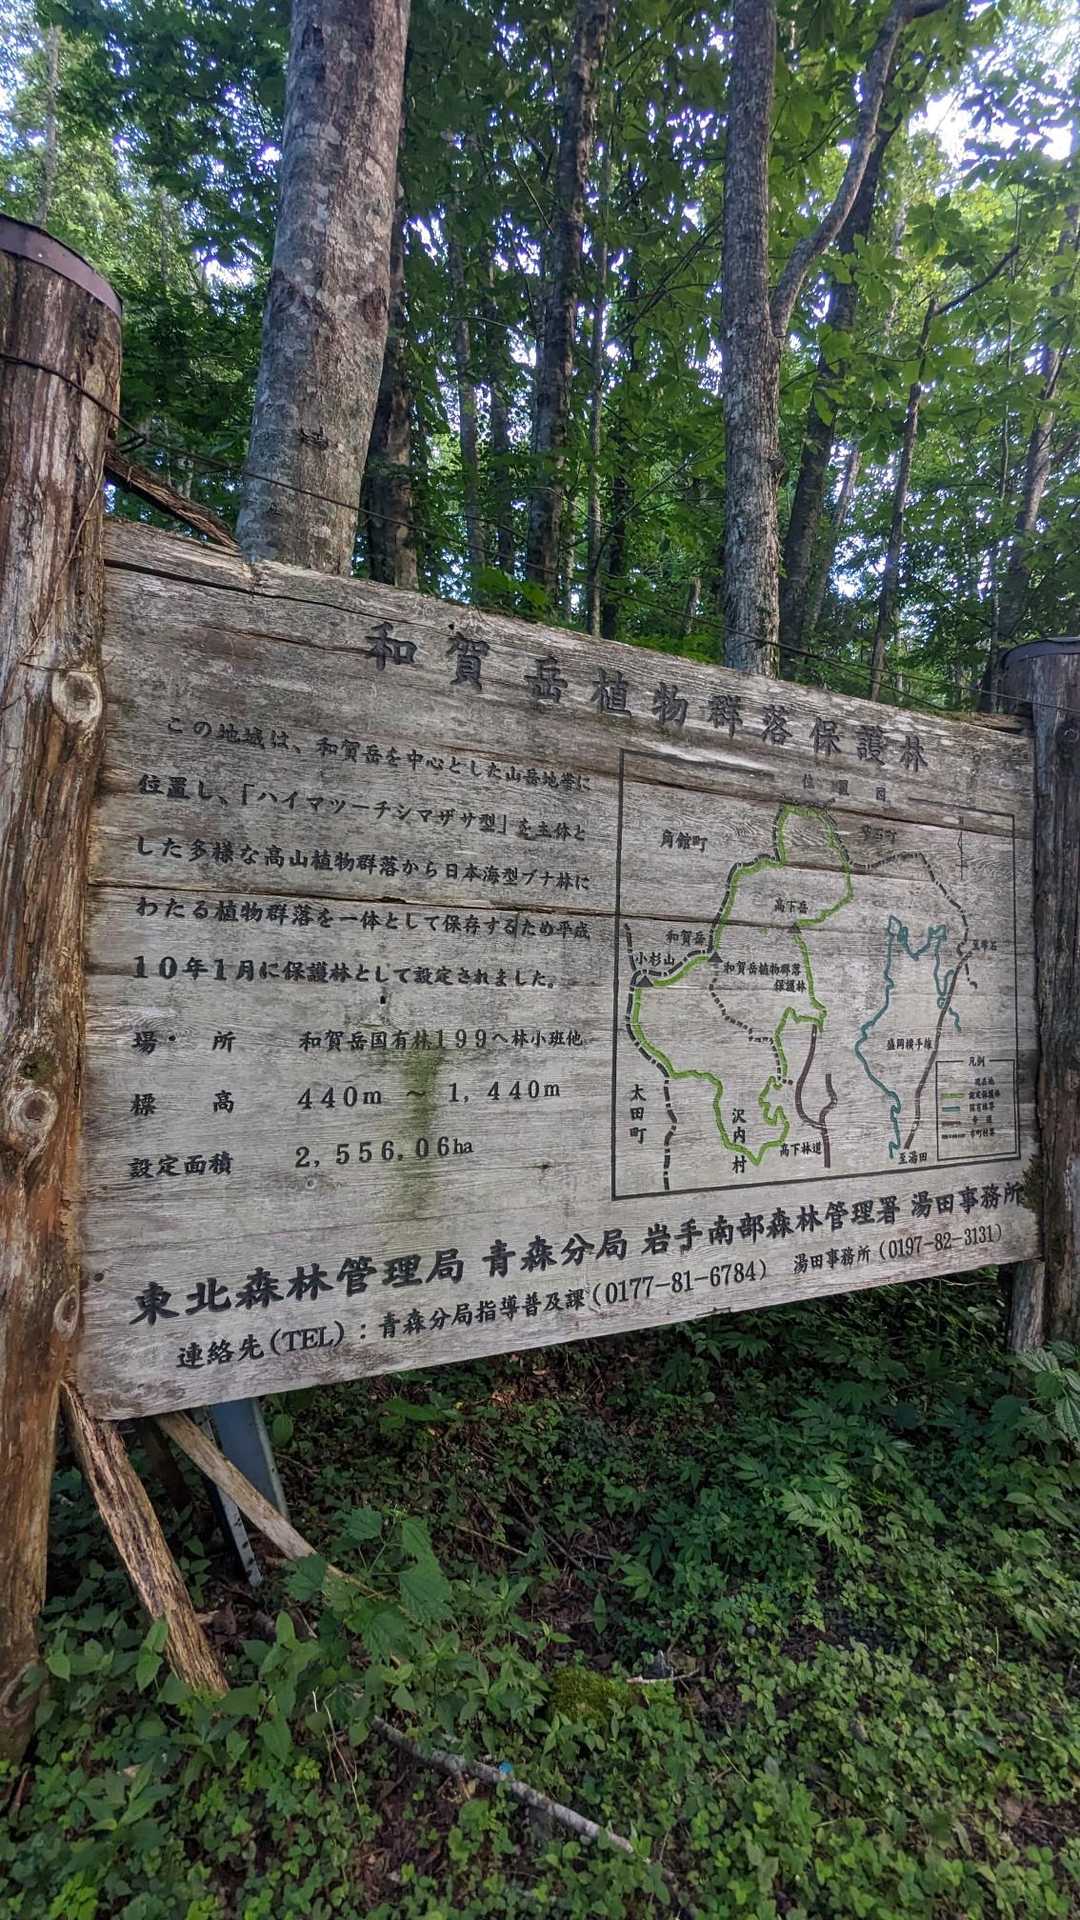 和賀岳植物群落保護林
この地域は、和賀岳を中心とした山岳地帯に
位置し、「ハイマツーチシマザサ型」を主体と
した多様な高山植物群落から日本海型ブナ林に
わたる植物群落を一体として保存するため平成
10年1月に保護林として設定されました。
場所 和賀岳国有林199へ林小班他
標高 440m ～ 1,440m
設定面積 2,556.06ha
位置図
角館町
雫石町
高下岳
和賀岳
小杉山
和賀岳植物群落
保護林
至雫石
盛岡横手線
太田町
沢内村
高下林道
至湯田
凡例
現在地
設定保護林
国有林界
歩道
市町村界
東北森林管理局 青森分局 岩手南部森林管理署 湯田事務所
連絡先(TEL)：青森分局指導普及課(0177-81-6784) 湯田事務所(0197-82-3131)